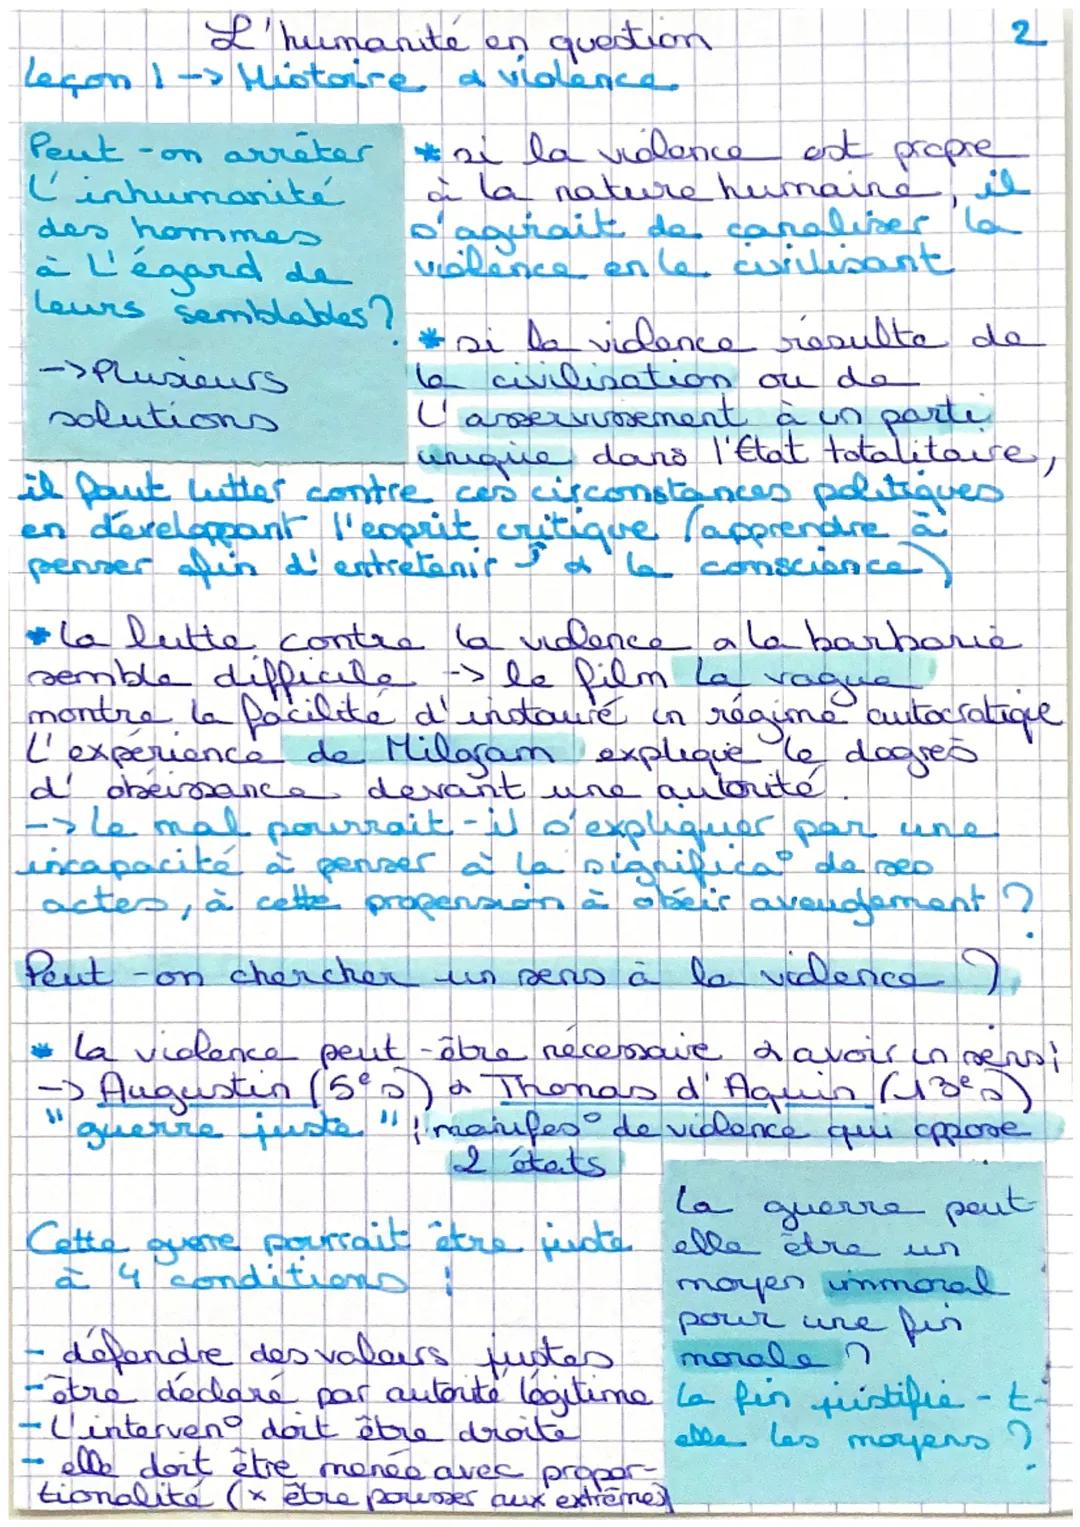 L'humanité en question
2
Leçon 1 -> Histoire & violence
Peut-on arrêter
l'inhumanité
des hommes
à l'égard de
leurs semblables ?
-> Plusieurs
solutions
* si la violence est propre
à la nature humaine, il
s'agirait de canaliser la
violence en le civilisant
* si la violence résulte de
la civilisation ou de
l'asservissement à un parti
unique dans l'Etat totalitaire,
il faut lutter contre ces circonstances politiques
en développant l'esprit critique (apprendre à
penser afin d'entretenir & la conscience)
* la lutte contre la violence & la barbarie
semble difficile -> le film La vague
montre la facilité d'instauré un régime autocratique
L'expérience de Milgram explique le degrés
d'obéissance devant une autorité.
-> le mal pourrait-il s'expliquer par une
incapacité à penser à la significa° de ses
actes, à cette propension à obéir aveuglement ?
Peut-on chercher un sens à la violence ?
* la violence peut-être nécessaire & avoir un sens :
-> Augustin (5e s) & Thomas d'Aquin (13e s)
"guerre juste" : manifes° de violence qui oppose
2 états
Cette guerre pourrait être juste
à 4 conditions :
- défendre des valeurs justes
- être déclaré par autorité légitime
- L'interven° doit être droite
- elle doit être menée avec propor-
tionalité (x être pousser aux extrêmes)
La guerre peut-
elle être un
moyen immoral
pour une fin
morale ?
La fin justifie-t-
elle les moyens ?